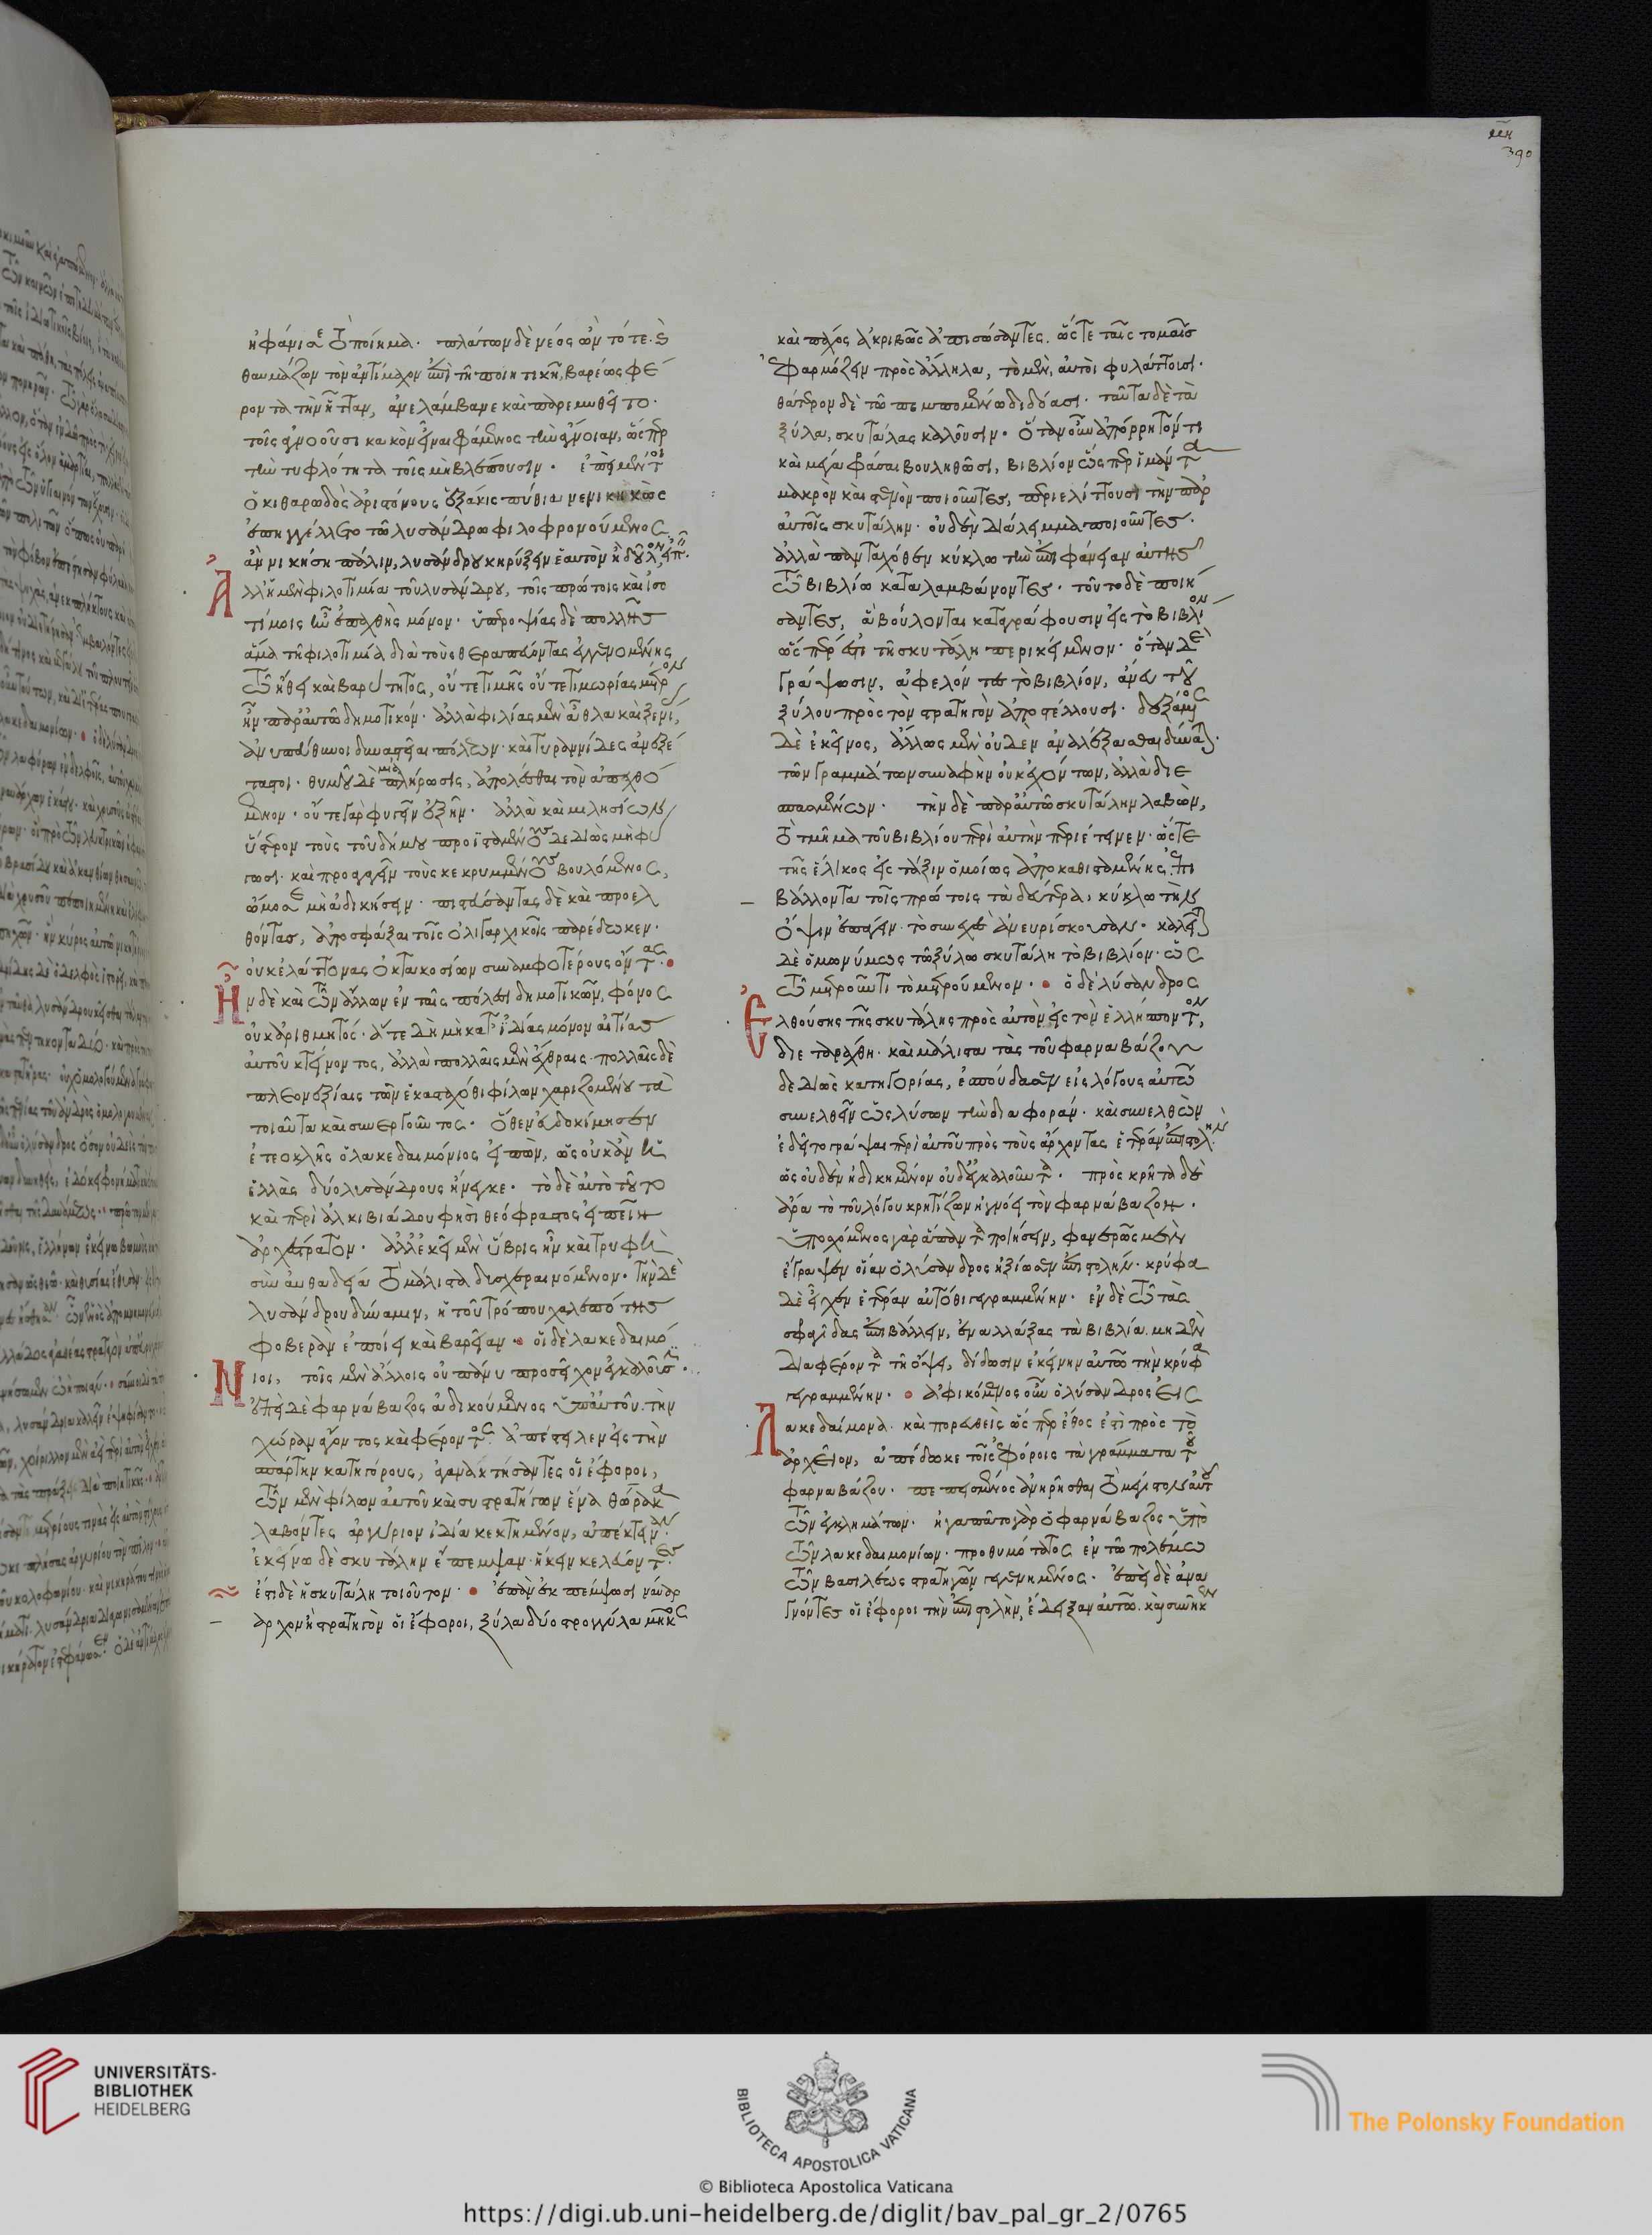 ἠφάνισε τὸ ποίημα. πλάτων δὲ νέος ὢν τότε καὶ
θαυμάζων τὸν ἀντίμαχον ἐπὶ τῆ ποιητικῆ, βαρέως φέ
ροντα τὴν ἧτταν, ἀνελάμβανε καὶ παρεμυθεῖτο.
τοῖς ἀγνοοῦσι κακὸν εἶναι φάμενος τὴν ἄγνοιαν, ὥσπερ
τὴν τυφλότητα τοῖς μὴ βλέπουσιν. ἐπεὶ μέντοι
ὁ κιθαρωδὸς ἀριστόνους ἑξάκις πύθια νενικηκὼς
ἐπηγγέλλετο τῶ λυσάνδρω φιλοφρονούμενος
ἂν νικήση πάλιν, λυσάνδρου κηρύξειν ἑαυτὸν ἢ δοῦλον, εἶπεν.
Αλλ' ἡ μὲν φιλοτιμία τοῦ λυσάνδρου, τοῖς πρώτοις καὶ ἰσο
τίμοις ἦν ἐπαχθὴς μόνον. ὑπεροψίας δὲ πολλῆς
ἅμα τῆ φιλοτιμία διὰ τοὺς θεραπεύοντας ἐγγενομένης
τῶ ἤθει καὶ βαρύτητος, οὔτε τιμῆς οὔτε τιμωρίας μέτρον
ἦν παρ' αὐτῶ δημοτικόν. ἀλλὰ φιλίας μὲν ἆθλα καὶ ξενίας,
ἀνυπεύθυνοι δυναστεῖαι πόλεων. καὶ τυραννίδες ἀνεξέ
ταστοι. θυμοῦ δὲ μία πλήρωσις, ἀπολέσθαι τὸν ἀπεχθό
μενον. οὔτε γὰρ φυγεῖν ἐξῆν. ἀλλὰ καὶ μιλησίων
ὕστερον τοὺς τοῦ δήμου προϊσταμένους δεδιὼς μὴ φύ
γωσι. καὶ προαγαγεῖν τοὺς κεκρυμμένους βουλόμενος,
ὤμοσε μὴ ἀδικήσειν. πιστεύσαντας δὲ καὶ προελ
θόντας, ἀποσφάξαι τοῖς ὀλιγαρχικοῖς παρέδωκεν.
οὐκ ἐλάττονας ὀκτακοσίων συναμφοτέρους ὄντας.
Ἦν δὲ καὶ τῶν ἄλλων ἐν ταῖς πόλεσι δημοτικῶν, φόνος
οὐκ ἀριθμητός. ἅτε δὴ μὴ κατ' ἰδίας μόνον αἰτίας
αὐτοῦ κτείνοντος, ἀλλὰ πολλαῖς μὲν ἔχθραις. πολλαῖς δὲ
πλεονεξίαις τῶν ἑκασταχόθι φίλων χαριζομένου τὰ
τοιαῦτα καὶ συνεργοῦντος. ὅθεν εὐδοκίμησεν
ἐτεοκλῆς ὁ λακεδαιμόνιος εἰπὼν, ὡς οὐκ ἂν ἡ
ἑλλὰς δύο λυσάνδρους ἤνεγκε. τὸ δὲ αὐτὸ τοῦτο
καὶ περὶ ἀλκιβιάδου φησὶ θεόφραστος εἰπεῖν
ἀρχέστρατον. ἀλλ' ἐκεῖ μὲν ὕβρις ἦν καὶ τρυφὴ
σὺν αὐθαδεία τὸ μάλιστα δυσχεραινόμενον. τὴν δὲ
λυσάνδρου δύναμιν, ἡ τοῦ τρόπου χαλεπότης
φοβερὰν ἐποίει καὶ βαρεῖαν. οἱ δὲ λακεδαιμό
Νιοι, τοῖς μὲν ἄλλοις οὐ πάνυ προσεῖχον ἐγκαλοῦσιν.
ἐπεὶ δὲ φαρνάβαζος ἀδικούμενος ὑπ' αὐτοῦ. τὴν
χώραν ἄγοντος καὶ φέροντος. ἀπέστειλεν εἰς τὴν
σπάρτην κατηγόρους, ἀγανακτήσαντες οἱ ἔφοροι,
τῶν μὲν φίλων αὐτοῦ καὶ συστρατήγων ἕνα θώρακα
λαβόντες ἀργύριον ἰδία κεκτημένον, ἀπέκτειναν.
ἐκείνω δὲ σκυτάλην ἔπεμψαν. ἥκειν κελεύοντες.
ἔστι δὲ ἡ σκυτάλη τοιοῦτον. ἐπὰν ἐκπέμπωσι ναύαρ
χον ἢ στρατηγὸν οἱ ἔφοροι, ξύλα δύο στρογγύλα μῆκος
390
καὶ πάχος ἀκριβῶς ἀπισώσαντες. ὥστε ταῖς τομαῖς
ἐφαρμόζειν πρὸς ἄλληλα, τὸ μὲν, αὐτοὶ φυλάττουσι.
θάτερον δὲ τῶ πεμπομένω διδόασι. ταῦτα δὲ τὰ
ξύλα, σκυτάλας καλοῦσιν. ὅταν οὖν ἀπόρρητόν τι
καὶ μέγα φράσαι βουληθῶσι, βιβλίον ὥσπερ ἱμάντα
μακρὸν καὶ στενὸν ποιοῦντες, περιελίττουσι τὴν παρ'
αὐτοῖς σκυτάλην. οὐδὲν διάλειμμα ποιοῦντες.
ἀλλὰ πανταχόθεν κύκλω τὴν ἐπιφάνειαν αὐτῆς
τῶ βιβλίω καταλαμβάνοντες. τοῦτο δὲ ποιή
σαντες, ἃ βούλονται καταγράφουσιν εἰς τὸ βιβλίον
ὥσπερ ἐστὶ τῆ σκυτάλη περικείμενον. ὅταν δὲ
γράψωσιν, ἀφελόντες τὸ βιβλίον, ἄνευ τοῦ
ξύλου πρὸς τὸν στρατηγὸν ἀποστέλλουσι. δεξάμενος
δὲ ἐκεῖνος, ἄλλως μὲν οὐδὲν ἀναλέξασθαι δύναται.
τῶν γραμμάτων συναφὴν οὐκ ἐχόντων, ἀλλὰ διε
σπασμένων. τὴν δὲ παρ' αὐτῶ σκυτάλην λαβὼν,
τὸ τμῆμα τοῦ βιβλίου περὶ αὐτὴν περιέτεινεν. ὥστε
τῆς ἕλικος εἰς τάξιν ὁμοίως ἀποκαθισταμένης, ἐπι
βάλλοντα τοῖς πρώτοις τὰ δεύτερα, κύκλω τὴν
ὄψιν ἐπάγειν. τὸ συνεχὲς ἀνευρίσκουσαν. καλεῖται
δὲ ὁμωνύμως τῶ ξύλω σκυτάλη τὸ βιβλίον. ὡς
τῶ μετροῦντι τὸ μετρούμενον. ὁ δὲ λύσανδρος
Ἐλθούσης τῆς σκυτάλης πρὸς αὐτὸν εἰς τὸν ἑλλήσποντον,
διεταράχθη. καὶ μάλιστα τὰς τοῦ φαρναβάζου
δεδιὼς κατηγορίας, ἐσπούδασεν εἰς λόγους αὐτῶ
συνελθεῖν ὡς λύσων τὴν διαφοράν. καὶ συνελθὼν
ἐδεῖτο γράψαι περὶ αὐτοῦ πρὸς τοὺς ἄρχοντας ἑτέραν ἐπιστολὴν.
ὡς οὐδὲν ἠδικημένον οὐδ' ἐγκαλοῦντα. πρὸς κρῆτα δὲ
ἄρα τὸ τοῦ λόγου κρητίζων ἠγνόει τὸν φαρνάβαζον.
ὑποσχόμενος γὰρ ἅπαντα ποιήσειν, φανερῶς μὲν
ἔγραψεν οἵαν ὁ λύσανδρος ἠξίωσεν ἐπιστολήν. κρύφα
δὲ εἶχεν ἑτέραν αὐτόθι γεγραμμένην. ἐν δὲ τῶ τὰς
σφραγῖδας ἐπιβάλλειν, ἐναλλάξας τὰ βιβλία μηδὲν
διαφέροντα τῆ ὄψει, δίδωσιν ἐκείνην αὐτῶ τὴν κρύφα
γεγραμμένην. ἀφικόμενος οὖν ὁ λύσανδρος εἰς
Λακεδαίμονα. καὶ πορευθεὶς ὥσπερ ἔθος ἐστὶ πρὸς τὸ
ἀρχεῖον, ἀπέδωκε τοῖς ἐφόροις τὰ γράμματα τοῦ
φαρναβάζου. πεπεισμένος ἀνηρῆσθαι τὸ μέγιστον αὐτῶ
τῶν ἐγκλημάτων. ἠγαπᾶτο γὰρ ὁ φαρνάβαζος ὑπὸ
τῶν λακεδαιμονίων. προθυμότατος ἐν τῶ πολέμω
τῶν βασιλέως στρατηγῶν γεγενημένος. ἐπεὶ δὲ ἀνα
γνόντες οἱ ἔφοροι τὴν ἐπιστολὴν, ἔδειξαν αὐτῶ. καὶ συνῆκεν
UNIVERSITÄTS-
BIBLIOTHEK
HEIDELBERG
BIBLIOTECA APOSTOLICA VATICANA
The Polonsky Foundation
© Biblioteca Apostolica Vaticana
https://digi.ub.uni-heidelberg.de/diglit/bav_pal_gr_2/0765